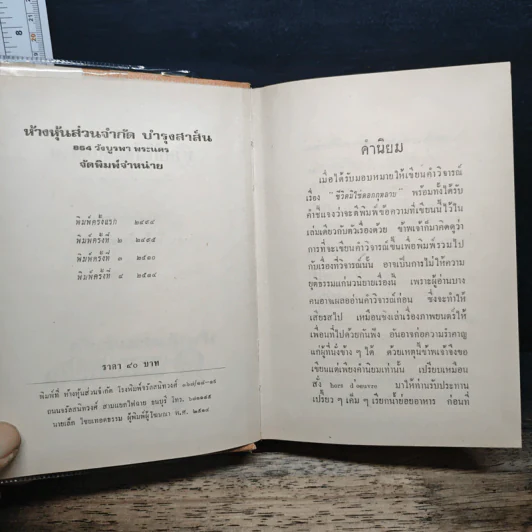 ห้างหุ้นส่วนจำกัด บำรุงสาส์น
๖๕๔ วังบูรพา พระนคร
จัดพิมพ์จำหน่าย
พิมพ์ครั้งแรก
พิมพ์ครั้งที่ ๒
พิมพ์ครั้งที่ ๓ ๒๕๑๐
พิมพ์ครั้งที่ ๔ ๒๕๑๔
ราคา ๔๐ บาท
พิมพ์ที่ ห้างหุ้นส่วนจำกัด โรงพิมพ์จรัลสนิทวงศ์
ถนนจรัลสนิทวงศ์ สามแยกไฟฉาย ธนบุรี โทร.
นายเล็ก ผู้พิมพ์ผู้โฆษณา พ.ศ. ๒๕๑๔
คำนิยม
เมื่อได้รับมอบหมายให้เขียนคำวิจารณ์
เรื่อง "ชีวิตมิใช่ดอกกุหลาบ" พร้อมทั้งได้รับ
คำชี้แจงว่าจะตีพิมพ์ข้อความที่เขียนนี้ไว้ใน
เล่มเดียวกับตัวเรื่องด้วย ข้าพเจ้าก็มาคิดดูว่า
การที่จะเขียนคำวิจารณ์ขึ้นเพื่อพิมพ์รวมไป
กับเรื่องที่วิจารณ์นั้น อาจเป็นการไม่ให้ความ
ยุติธรรมแก่นวนิยายเรื่องนี้ เพราะผู้อ่านบาง
คนอาจเผลออ่านคำวิจารณ์ก่อน ซึ่งจะทำให้
เสียรสไป เหมือนชิงเล่าเรื่องภาพยนตร์ให้
เพื่อนที่ไปด้วยกันฟัง อันอาจก่อความรำคาญ
แก่ผู้ที่นั่งข้าง ๆ ได้ ด้วยเหตุนี้ข้าพเจ้าจึงขอ
เขียนแต่เพียงคำนิยมเท่านั้น เปรียบเหมือน
สั่ง hors d'oeuvre มาให้ท่านรับประทาน
เปรี้ยว ๆ เค็ม ๆ เรียกน้ำย่อยอาหาร ก่อนที่